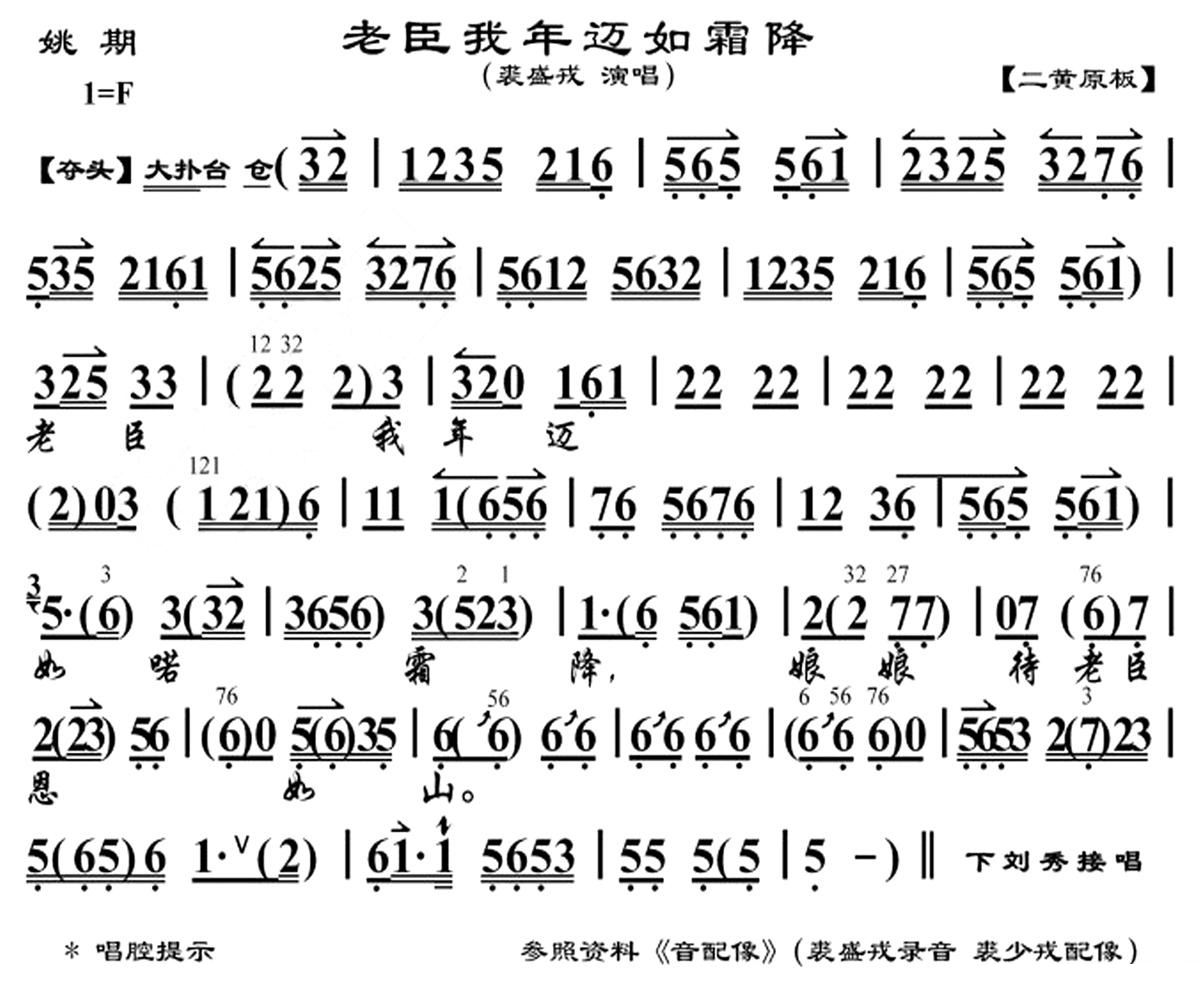 姚 期
老臣我年迈如霜降
(裘盛戎 演唱)
1=F
【二黄原板】
【夺头】大扑台 仓(32 | 1235 216 | 565 561 | 2325 3276 |
535 2161 | 5625 3276 | 5612 5632 | 1235 216 | 565 561) |
12 32
325 33 | (22 2)3 | 320 161 | 22 22 | 22 22 | 22 22
老 臣 我 年 迈
121
(2)03 (121)6 | 11 1(656 | 76 5676 | 12 36 | 565 561) |
3 3 2 1 32 27 76
5·(6) 3(32 | 3656) 3(523) | 1·(6 561) | 2(2 77) | 07 (6)7 |
如 喏 霜 降, 娘 娘 待 老 臣
76 56 6 56 76 3
2(23) 56 | (6)0 5(6)35 | 6( 6) 66 | 66 66 | (66 6)0 | 5653 2(7)23 |
恩 如 山。
5(65)6 1·∨(2) | 61·1 5653 | 55 5(5 | 5 －) ‖ 下刘秀接唱
* 唱腔提示
参照资料《音配像》(裘盛戎录音 裘少戎配像)